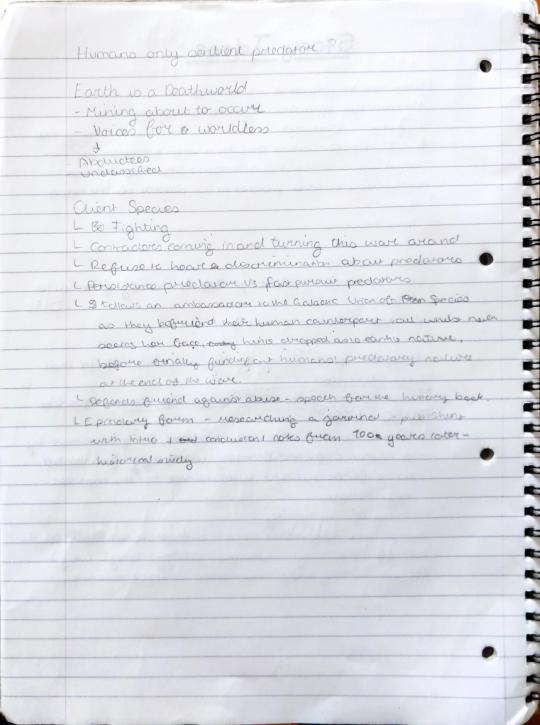 Humans only sentient predator ?
Earth is a Deathworld
- Mining about to occur
- Voices for a worldless
↓
Abductees
Unclassified
Client Species
↳ Be Fighting
↳ Contractors coming in and turning this war around
↳ Refuse to hear a discrimination about predators
↳ Persistance predator vs fast pursuit predators
↳ It follows an ambassador to the Galactic Union of Species
as they befriend their human counterpart, all whilst never
seeing her face, hints dropped as to earths nature,
before finally finding out humans predatory nature
at the end of the war.
↳ Defends friend against abuse - speech from the history book.
↳ Epistolary form - researching a journal - publishing
with intro + conclusion notes from 100 years later -
historical study